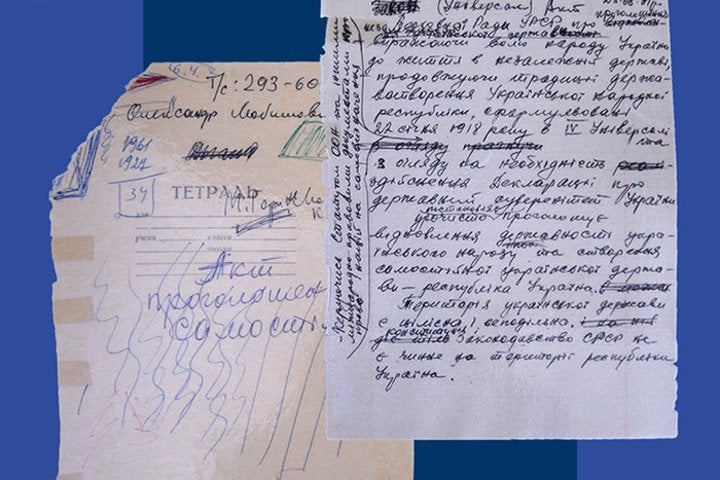 6.4.
Т/с: 293-60
Олександр
1961
1927
34
ТЕТРАДЬ
М. Горинь
для
учени
класса
школы
Акт
проголошен
самості
Закон (Універсал) Акт проголошення
Верховної Ради УРСР про
української державності
Виражаючи волю народу України
до життя в незалежній державі,
продовжуючи традиції держа-
вотворення Української народної
республіки, сформульовані
22 січня 1918 року в IV Універсалі та
з огляду на необхідність
здійснення Декларації про
державний суверенітет України
урочисто проголошує
відновлення державності укра-
їнського народу та створення
самостійної української держа-
ви – республіка Україна.
Територія української держави
є цілісна і неподільна.
конституція
Законодавство СРСР не
є чинне на території республіки
Україна.
- Керуючись Статутом ООН та іншими
міжнародно-правовими документами про
право націй на самовизначення